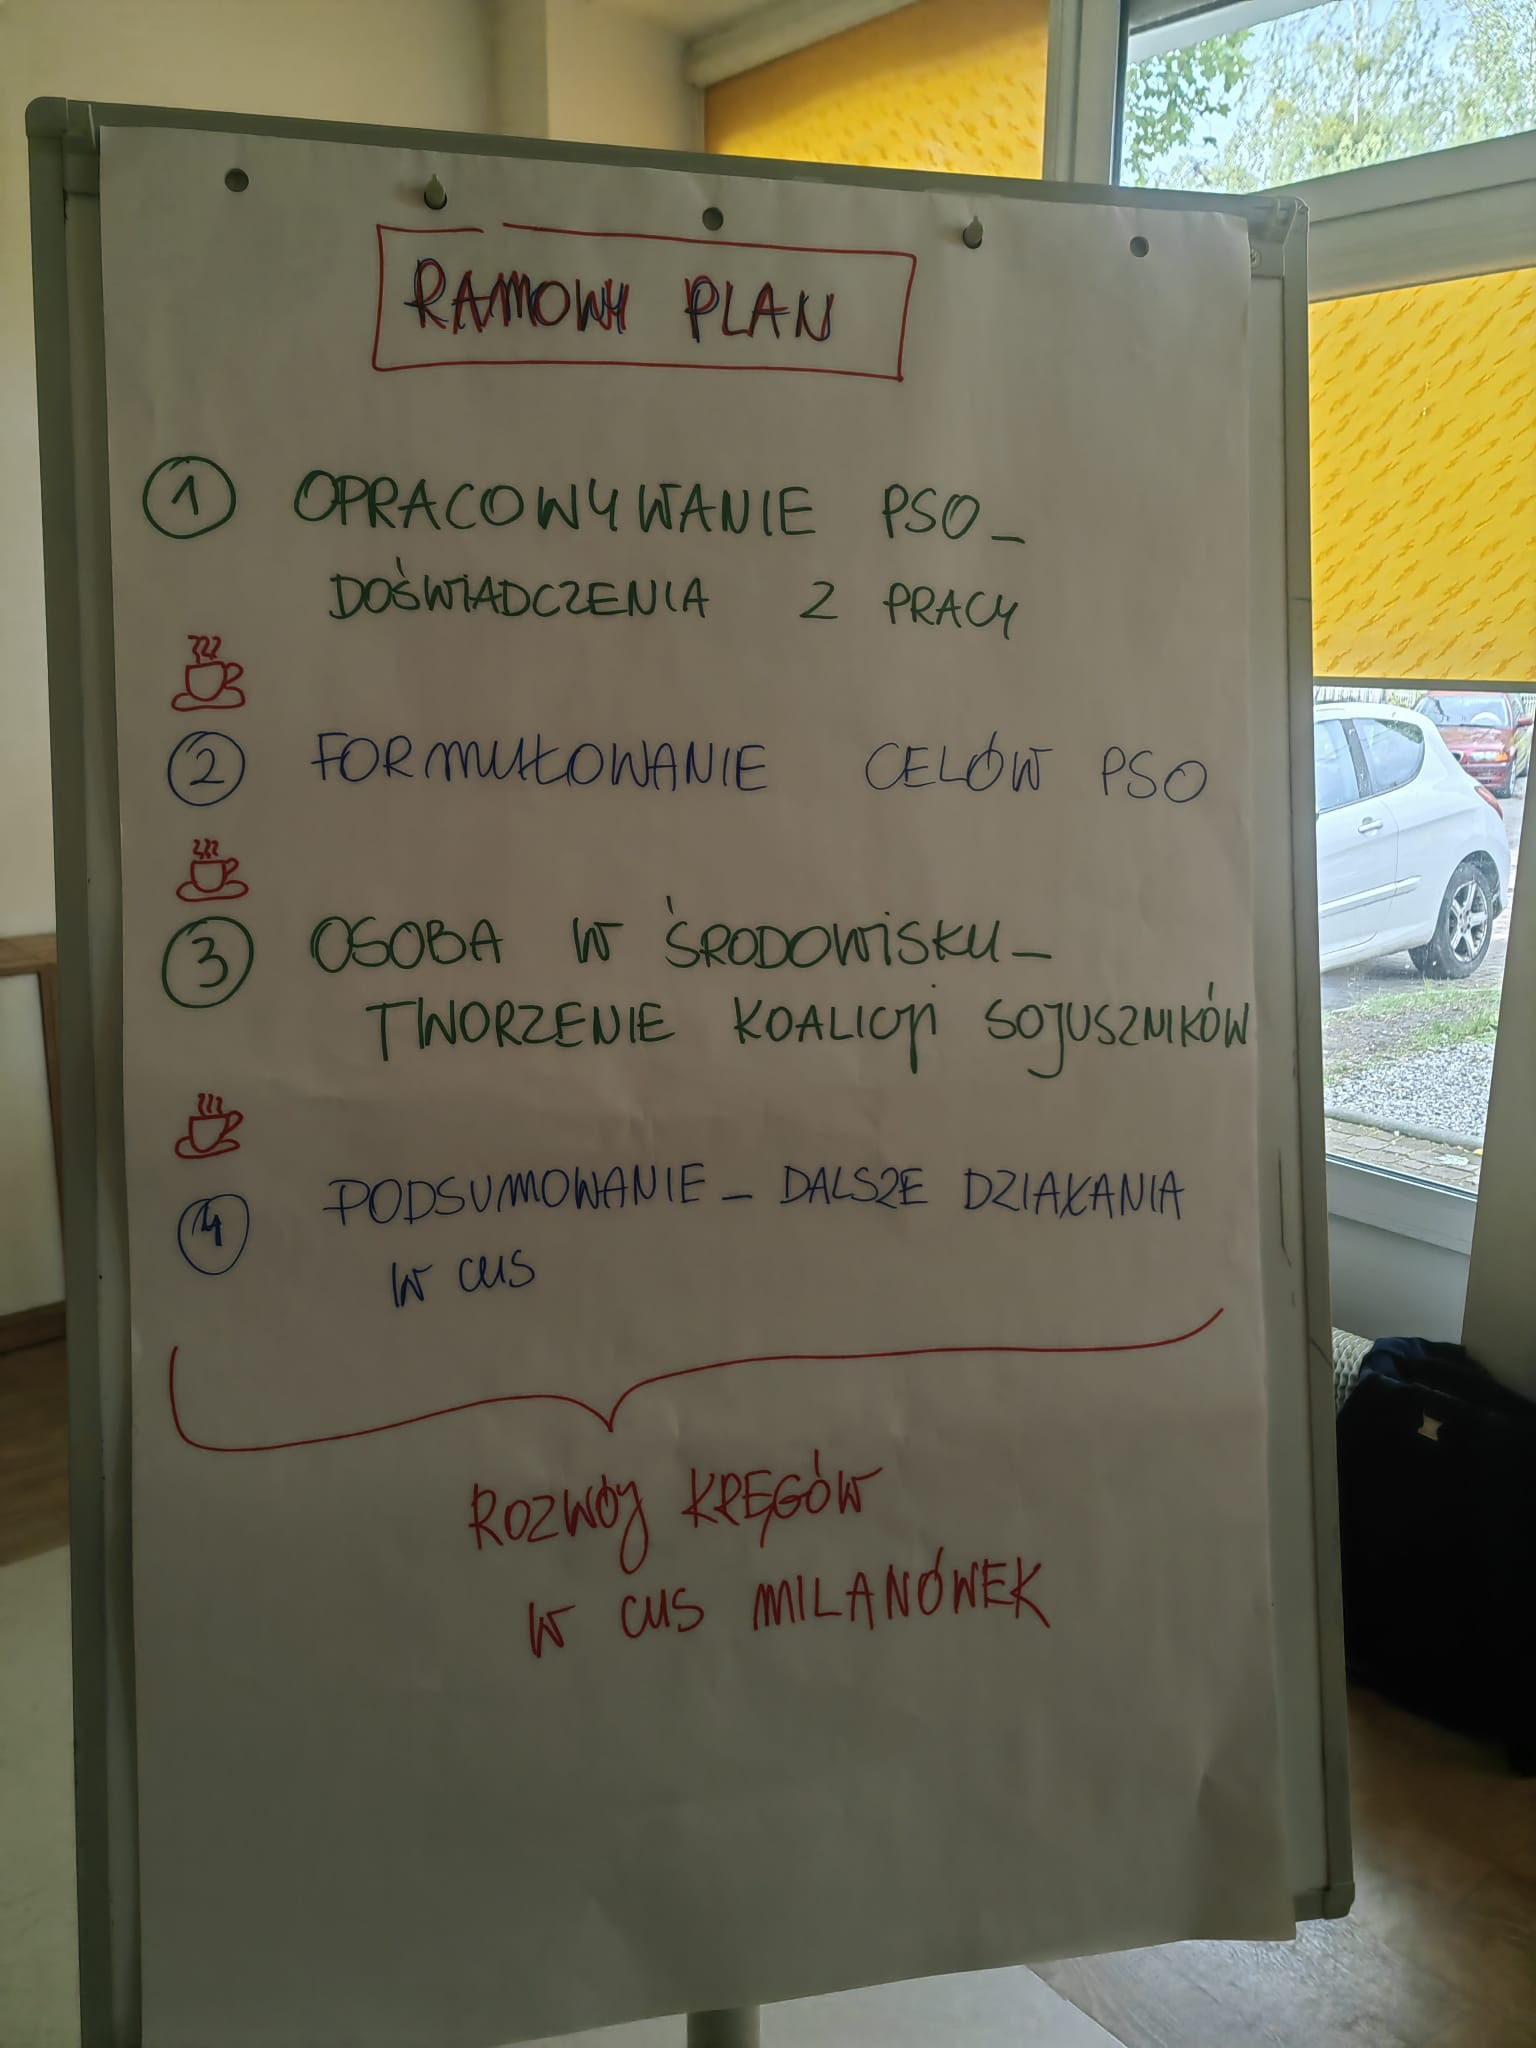 RAMOWY PLAN
1 OPRACOWYWANIE PSO -
DOŚWIADCZENIA Z PRACY
2 FORMUŁOWANIE CELÓW PSO
3 OSOBA W ŚRODOWISKU -
TWORZENIE KOALICJI SOJUSZNIKÓW
4 PODSUMOWANIE - DALSZE DZIAŁANIA
W CUS
ROZWÓJ KRĘGÓW
W CUS MILANÓWEK